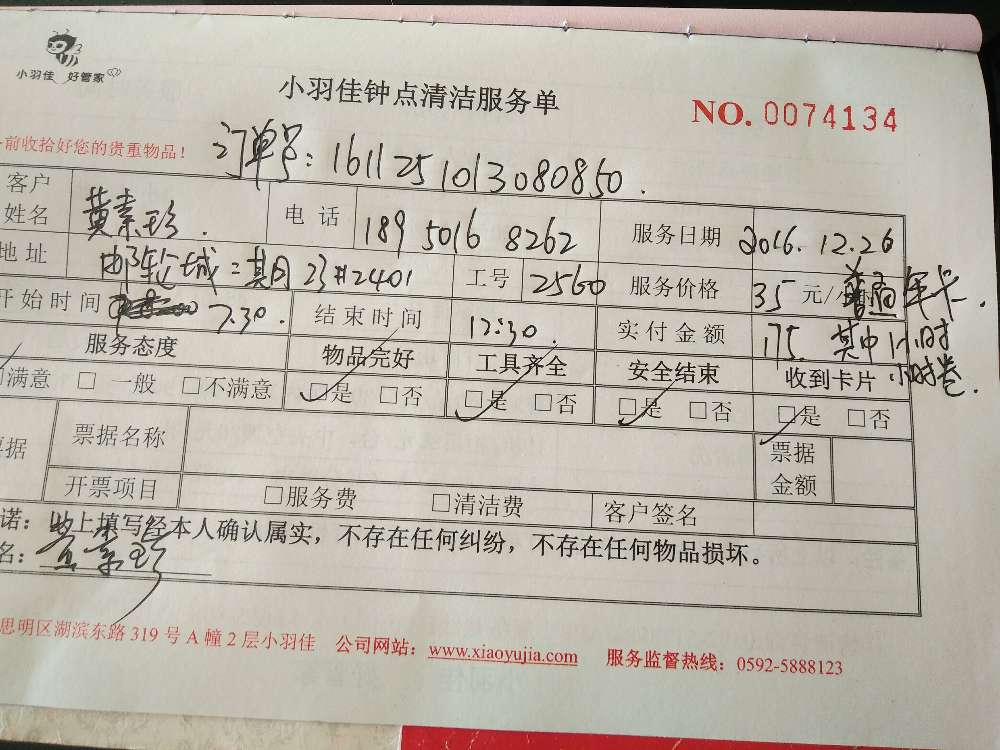 小羽佳 好管家
小羽佳钟点清洁服务单
NO. 0074134
前收拾好您的贵重物品!
订单号: 1611251013080850.
客户姓名 黄素珍. 电话 189 5016 8262 服务日期 2016.12.26
地址 邮轮城二期23#2401 工号 2560 服务价格 35元/小时 普通年卡.
开始时间 7.30. 结束时间 12:30. 实付金额 175. 其中1小时
小时卷.
服务态度 物品完好 工具齐全 安全结束 收到卡片
□满意 □ 一般 □不满意 □是 □否 □是 □否 □是 □否 □是 □否
据 票据名称 票据金额
开票项目 □服务费 □清洁费 客户签名
诺: 以上填写经本人确认属实,不存在任何纠纷,不存在任何物品损坏。
名: 黄素珍
思明区湖滨东路 319 号 A 幢 2 层小羽佳 公司网站: www.xiaoyujia.com 服务监督热线: 0592-5888123